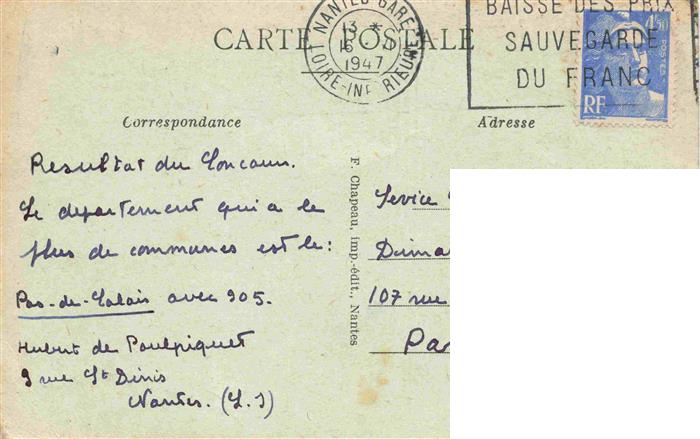 CARTE POSTALE
NANTES GARE
13 *
16 - II
1947
LOIRE-INFÉRIEURE
BAISSE DES PRIX
SAUVEGARDE
DU FRANC
4f50
POSTES
RF
Correspondance
Adresse
Resultat du Concours.
Le departement qui a le
plus de communes est le:
Pas-de-Calais avec 905.
Hubert de Poulpiquet
9 rue St Dinis
Nantes. (L. I)
F. Chapeau, imp.-édit., Nantes
Sevice
Dima
107 rue
Pa